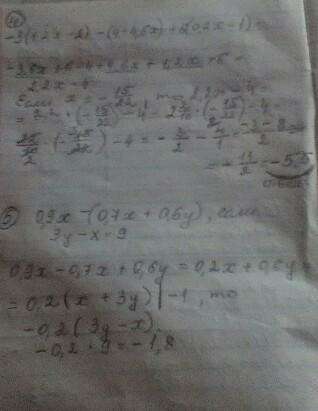 ④
-3(1,2x-2)-(4-4,6x)+6(0,2x-1)=
-3,6x+6-4+4,6x+1,2x-6=
2,2x-4
Если x=-15/22, то 2,2x-4=
=2,2·(-15/22)-4=2 2/10·(-15/22)-4=
·(-15/22)-4=-3/2-4/1=-3-8/2=
=-11/2=-5,5
⑤ 0,9x-(0,7x+0,6y), если
3y-x=9
0,9x-0,7x+0,6y=0,2x+0,6y=
=0,2(x+3y)|-1, то
-0,2(3y-x)
-0,2·9=-1,8